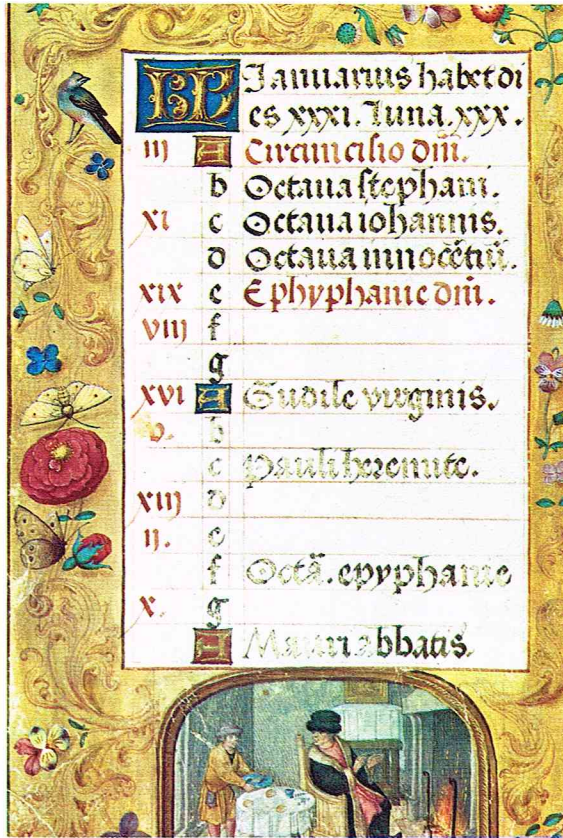 KL Januarius habet di
es xxxi. Luna. xxx.
iii A Circumcisio dm̄.
b Octaua stephani.
xi c Octaua iohannis.
d Octaua innocētiū.
xix e Ephyphanie dm̄.
viii f
g
xvi A Gudile virginis.
v. b
c Pauli heremite.
xiii d
ii. e
f Octā. epyphanie
x. g
A Mauri abbatis.